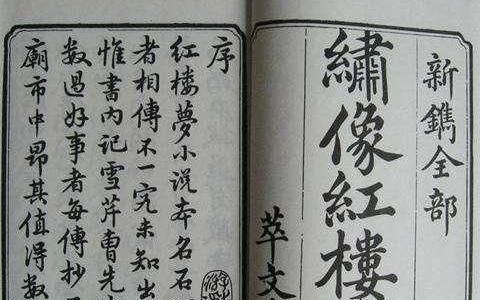 新鐫全部
繡像紅樓
萃文
序
紅樓夢小説本名石
者相傳不一究未知出
惟書内記雪芹曹先
數過好事者每傳抄
廟市中昂其值得數